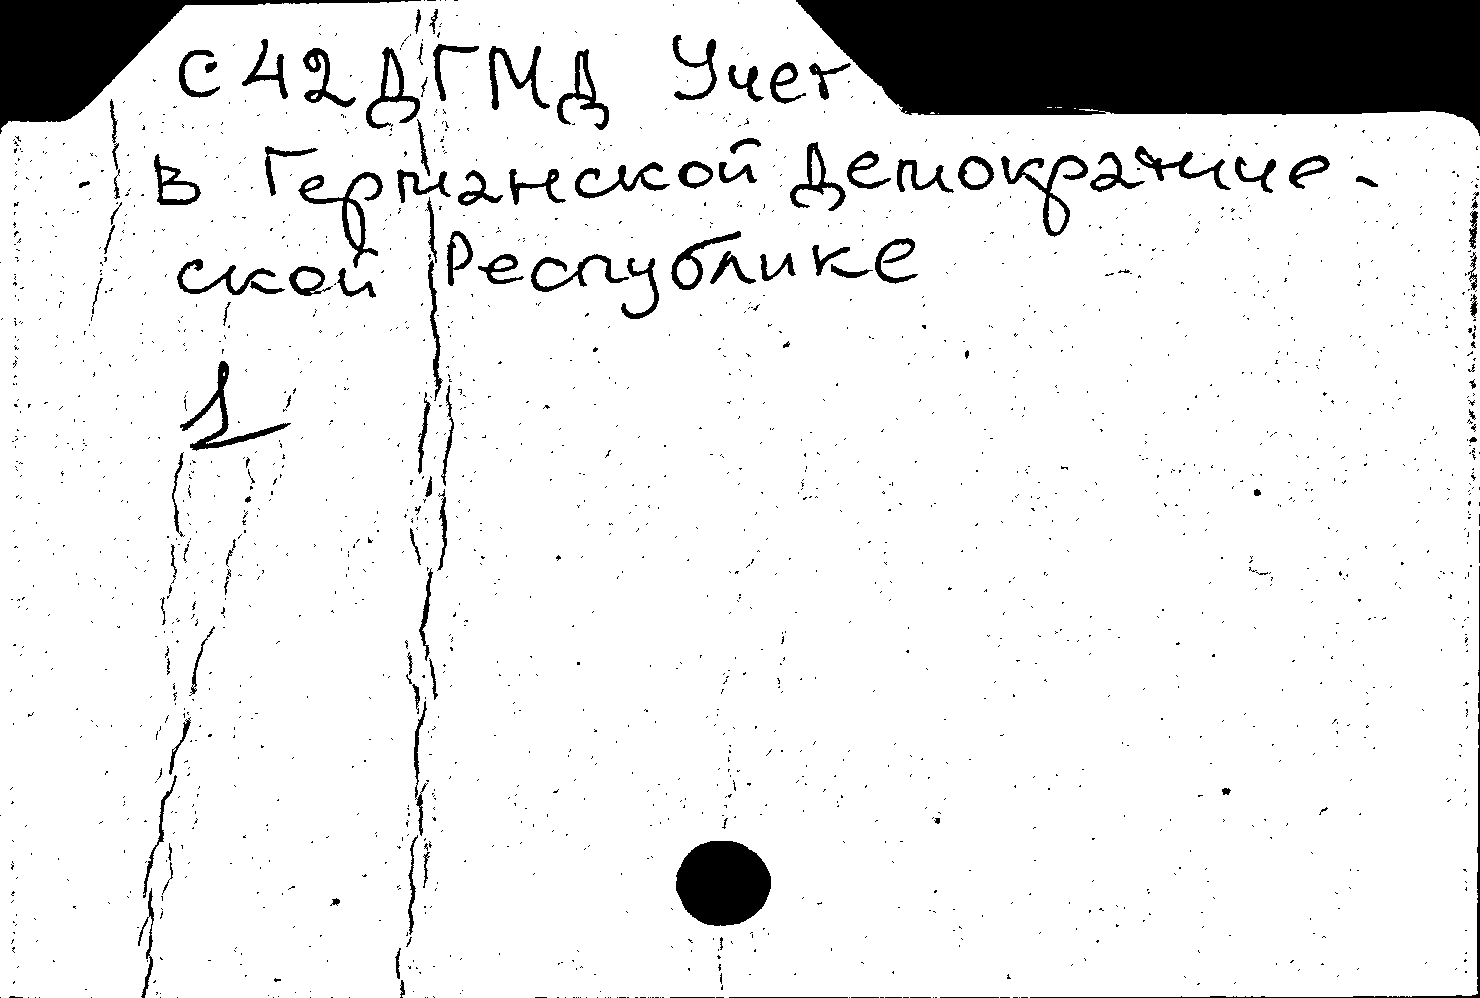 С42ДГМД Учет
в Германской Демократиче-
ской Республике
1